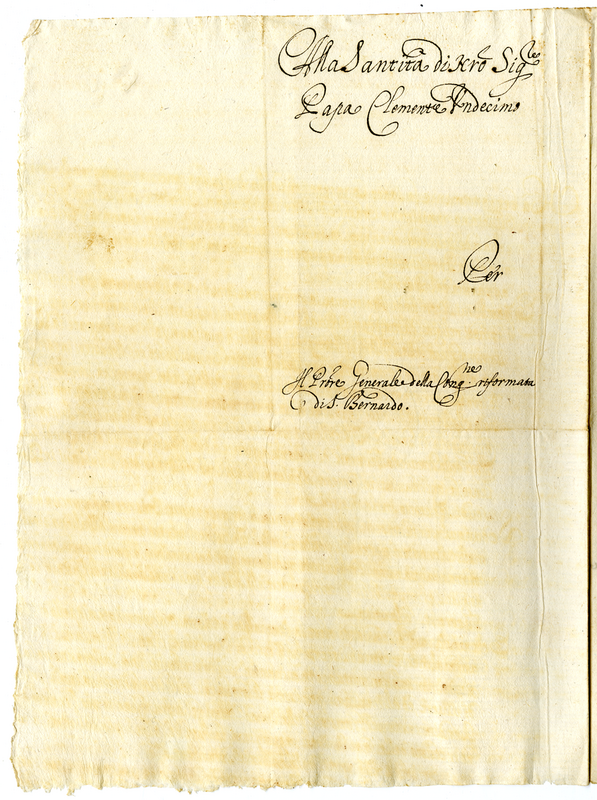 Alla Santità di Nrõ Sig.re
Papa Clemente Undecimo
Per
Il Prõre Generale della Cong.ne riformata
di S. Bernardo.